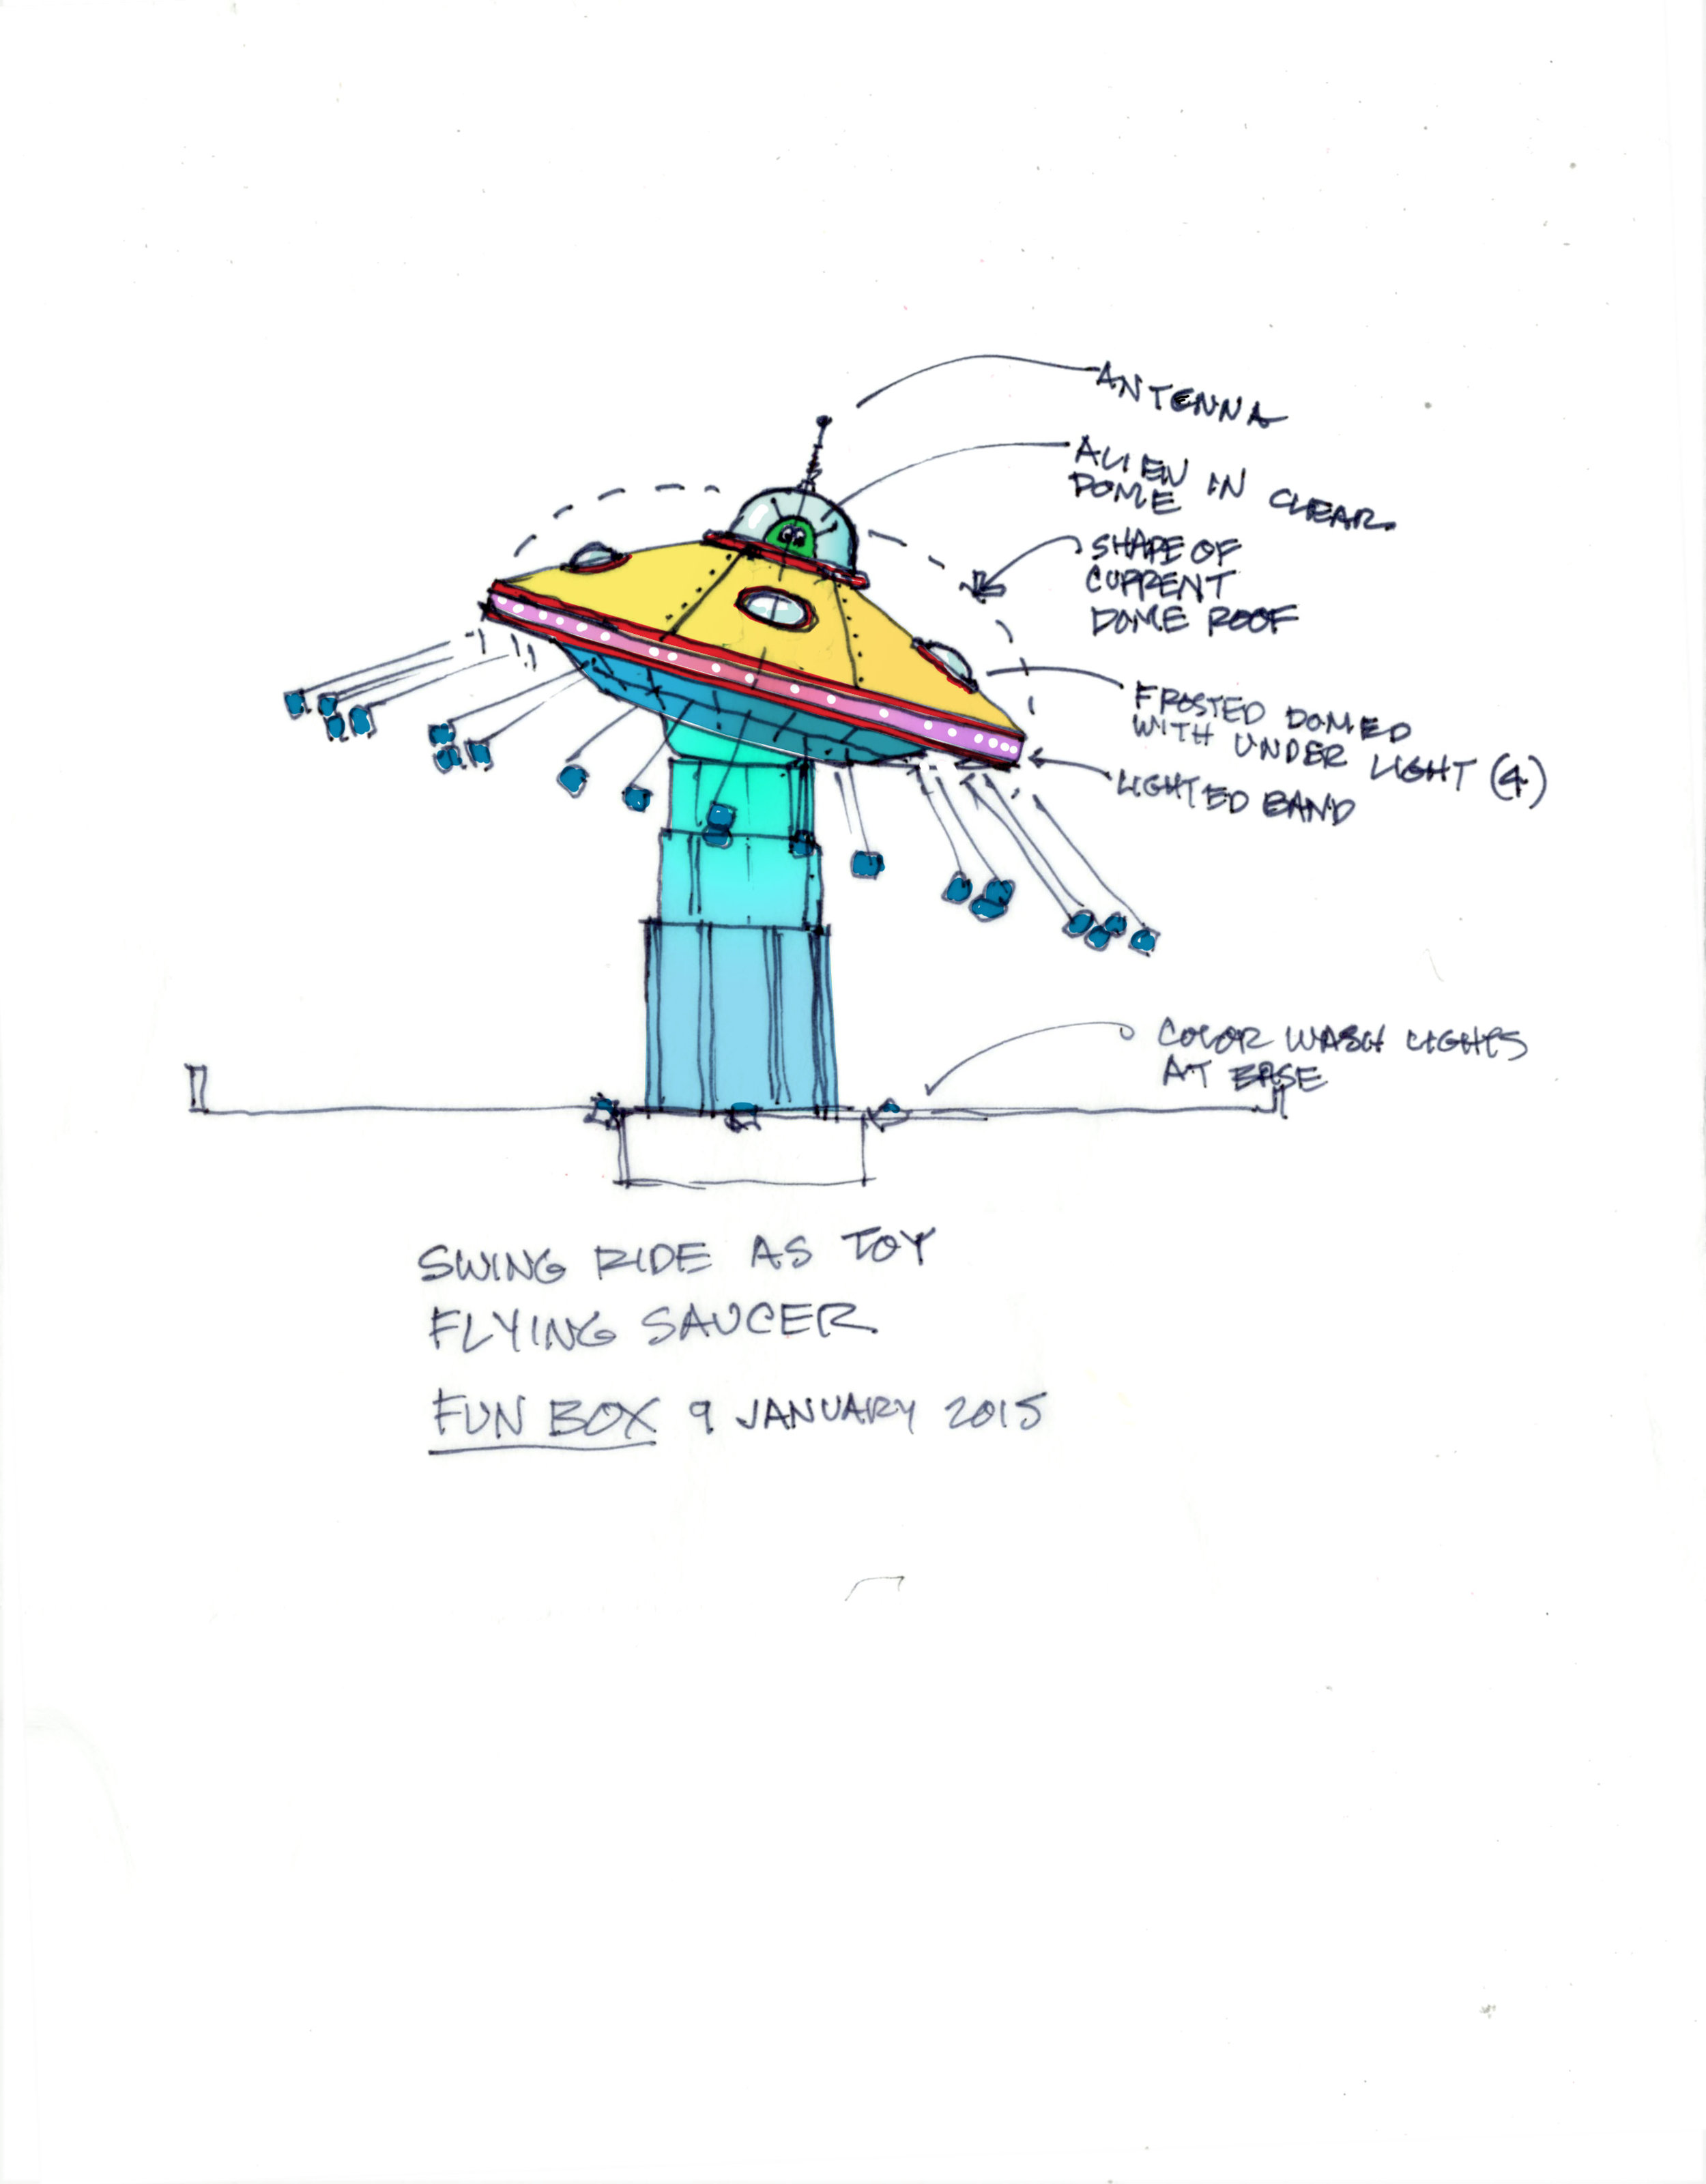 ANTENNA
ALIEN IN CLEAR
DOME
SHAPE OF
CURRENT
DOME ROOF
FROSTED DOMED
WITH UNDER LIGHT (4)
LIGHTED BAND
COLOR WASH LIGHTS
AT BASE
SWING RIDE AS TOY
FLYING SAUCER
FUN BOX 9 JANUARY 2015